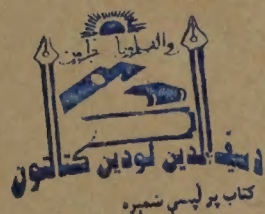 والقلم وما يسطرون
د سیف الدین لودین کتابتون
کتاب پر لپسي نمبره